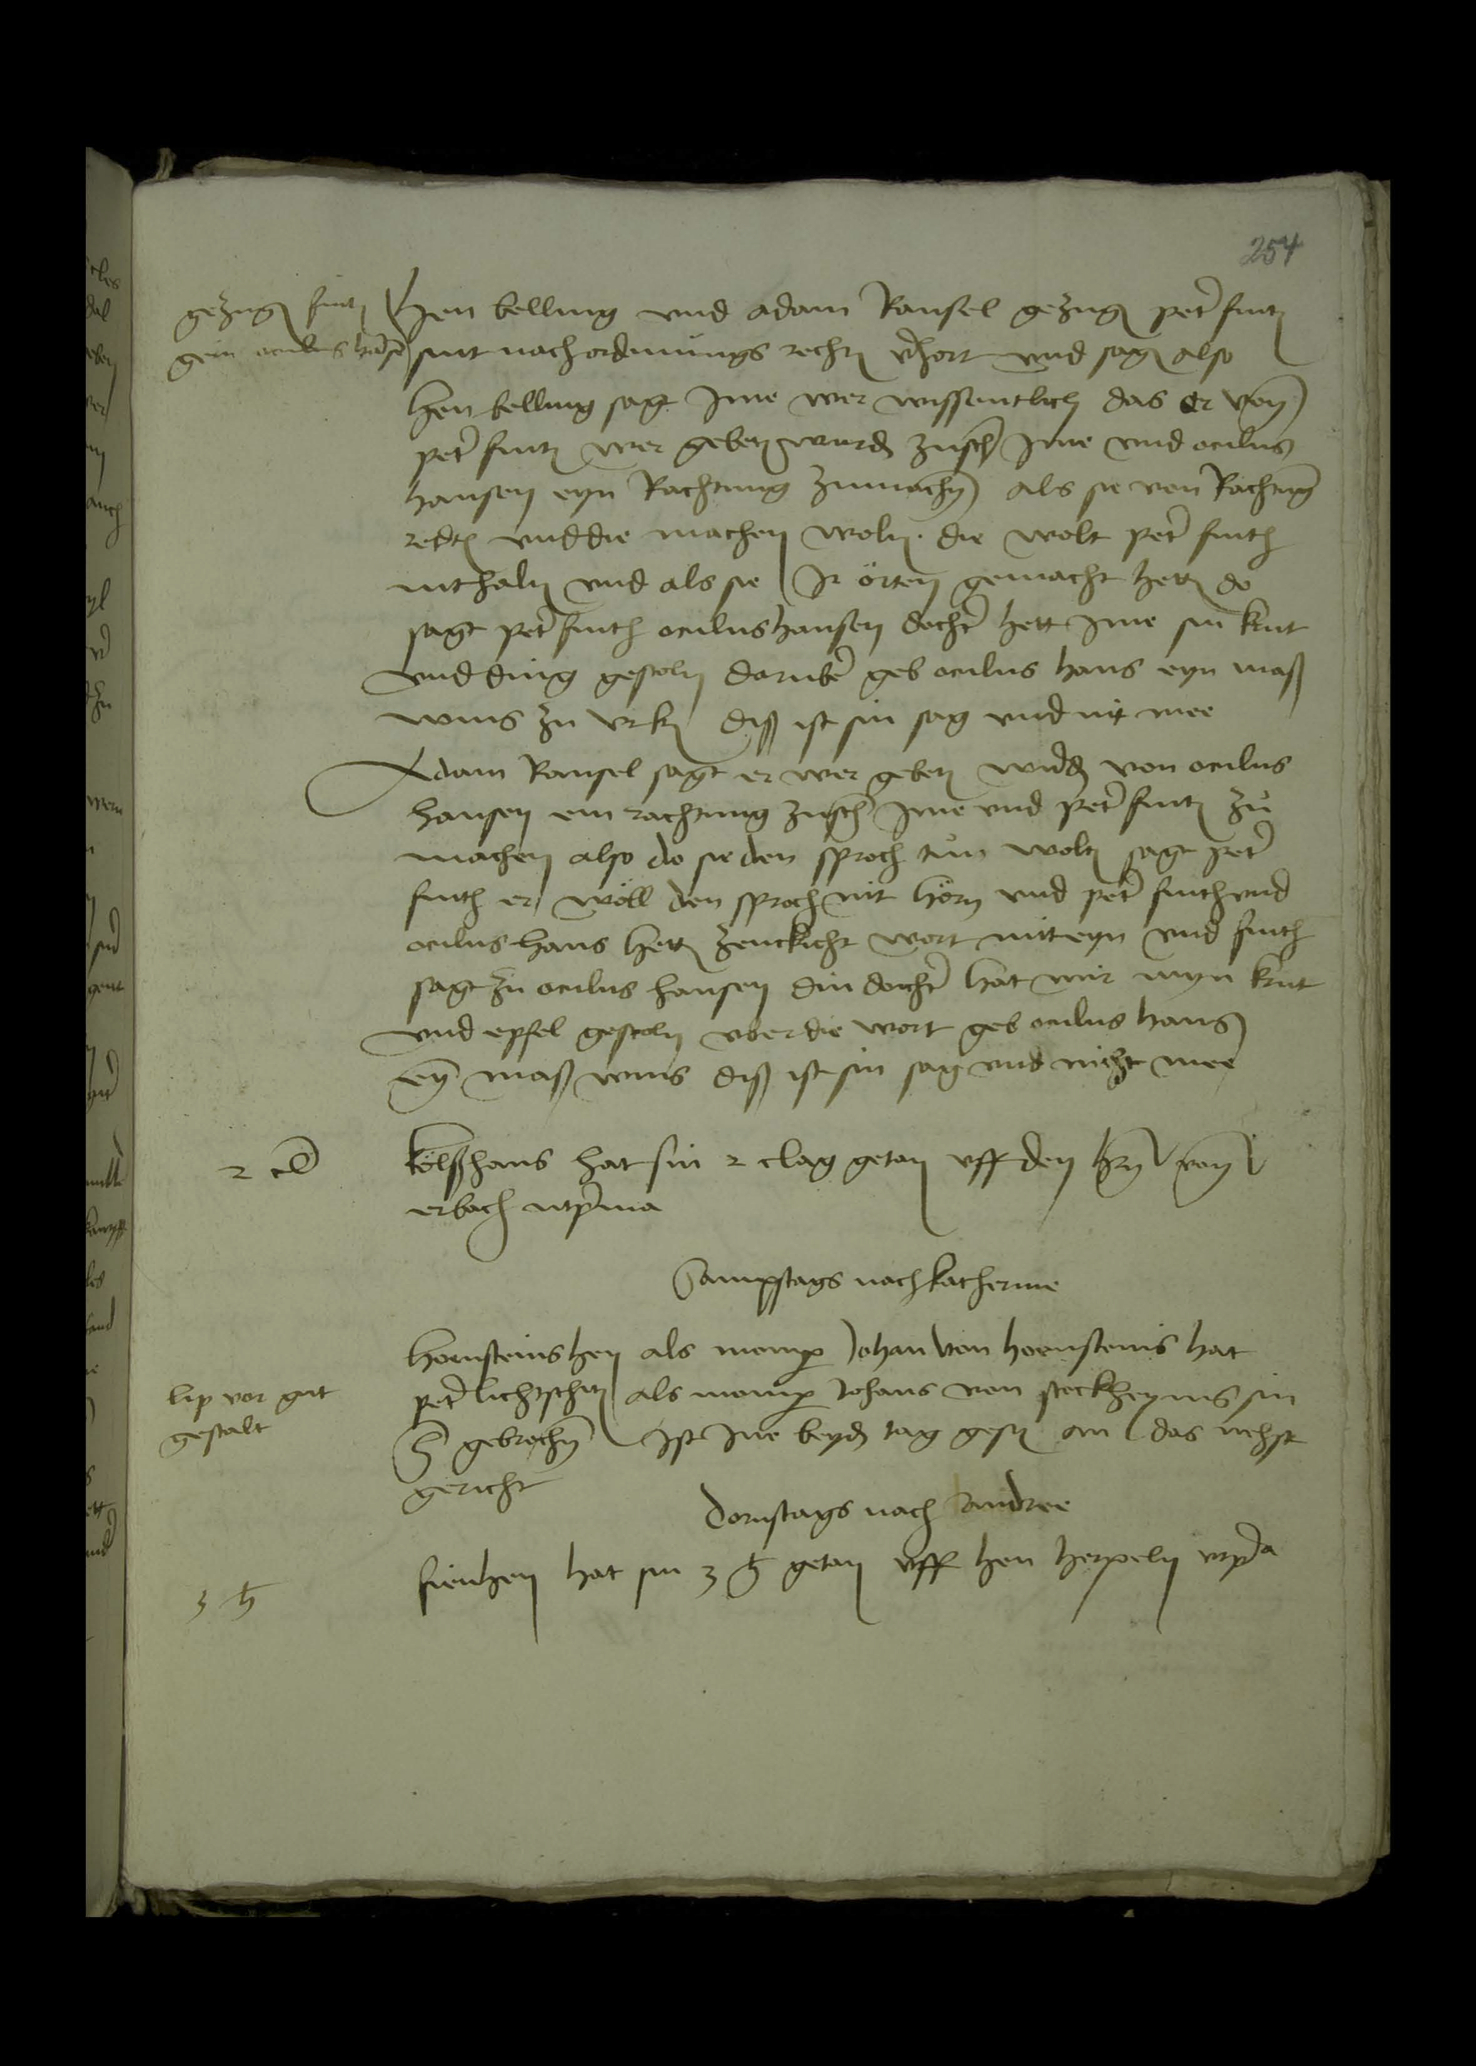 254
gezugen fintz
gein oculus hansen
Hen belling vnd adam Ransel gezugen peter fintz
sint nach ordenu̇ngs rechten v̾hort vnd sagen also
Hen belling sagt Jme wer wissentlich das er von
peter fintz wer gebeten wurden zuschen Jme vnd oculus
hansen eyn Rachtung zumachen als sie von Rachtung
redten vnd die machen wolten die wolt peter finth
nit halten vnd als sie Jr örten gemacht hetten do
sagt peter finth oculushansen dochter hett Jme sin krut
vnd ding gestoln daruber geb oculus hans eyn maß
wins zu vrkunde diß ist sin sag vnd nit mee
Adam Ransel sagt er wer gebeten wurden von oculus
hansen ein rachtung zuschen Jme vnd peter fintz zu
machen also do sie den sproch tun wolten sagt peter
finth er wöll den sproch nit hören vnd peter finth vnd
oculus hans hetten zenckicht wort mit eyn vnd finth
sagt zu oculus hansen din dochter hat mir myn krut
vnd epfel gestoln vber die wort geb oculus hans
eyn maß wins diß ist sin sag vnd nicht mee
2 cl
Kölßhans hat sin 2 clag getan vff den hern von
erbach ut prima
Sampstags nach katherine
lip vor gut
gestalt
Hornsteins hen als momper Johan von hoensteins hat
peter lichtschitz als momper Johans von steckheyms sin
h gebrochen Jst Jne beyden tag gesatzt an das nehst
gericht
Dornstags nach andree
3 h
fienhen hat sin 3 h getan vff hen herpeln ut prima